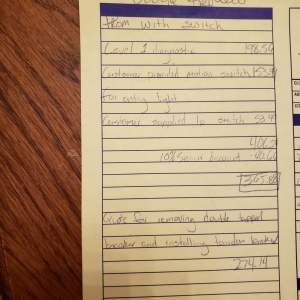 from with switch
Level 1 diagnostic 198.56
Customer provided motion switch 153.98
For entry light
Customer supplied to switch 53.98
406.52
10% Senior discount -40.66
365.86
Quote for removing double tapped
breaker and installing tandem breaker
274.14